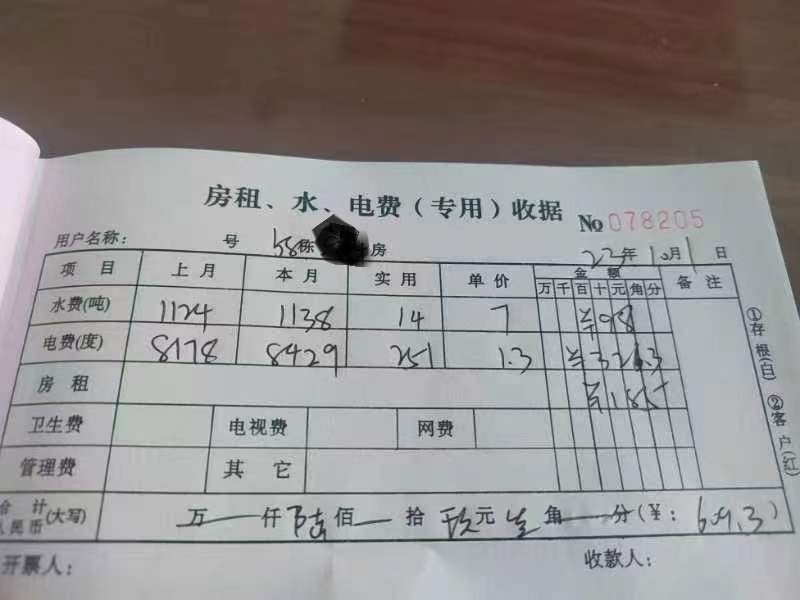 房租、水、电费(专用)收据 No 078205
用户名称: 号 58栋 房 22年10月1日
项目 上月 本月 实用 单价 金额 备注
万千百十元角分
水费(吨) 1124 1138 14 7 ¥98
电费(度) 8178 8429 251 1.3 ¥326.3
房租 ¥185
卫生费 电视费 网费
管理费 其它
合计人民币(大写) 万 仟 陆佰 拾 玖元 叁角 分(¥: 609.3)
开票人: 收款人:
①存根(白) ②客户(红)